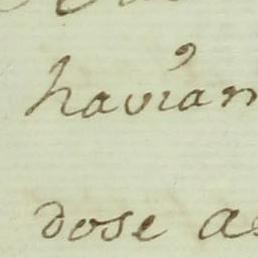 havían
dose a